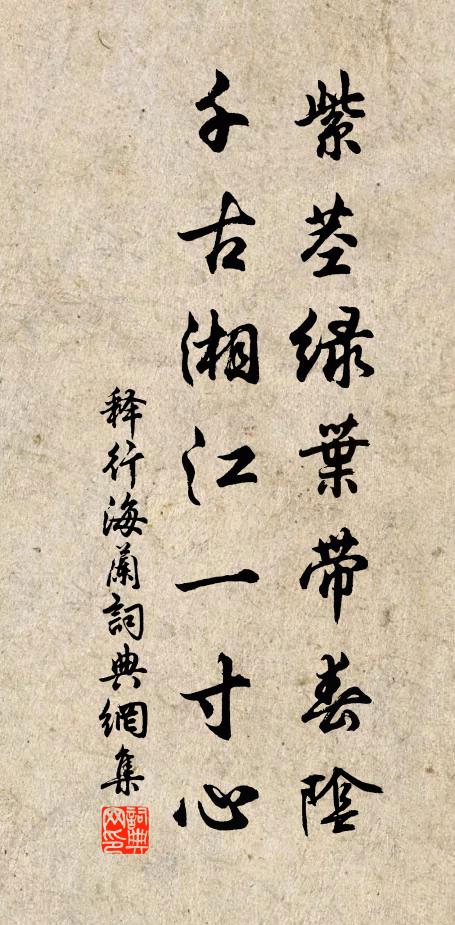 紫茎绿葉带春陰
千古湘江一寸心
释行海蘭詞典網集
詞典网印